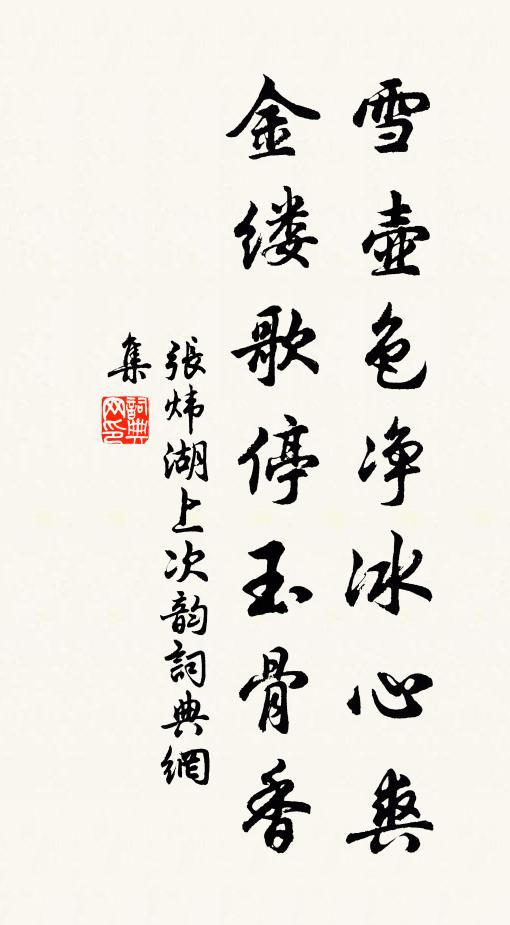 雪壺色净冰心爽
金缕歌停玉骨香
張炜湖上次韵詞典網
集
詞典
网印